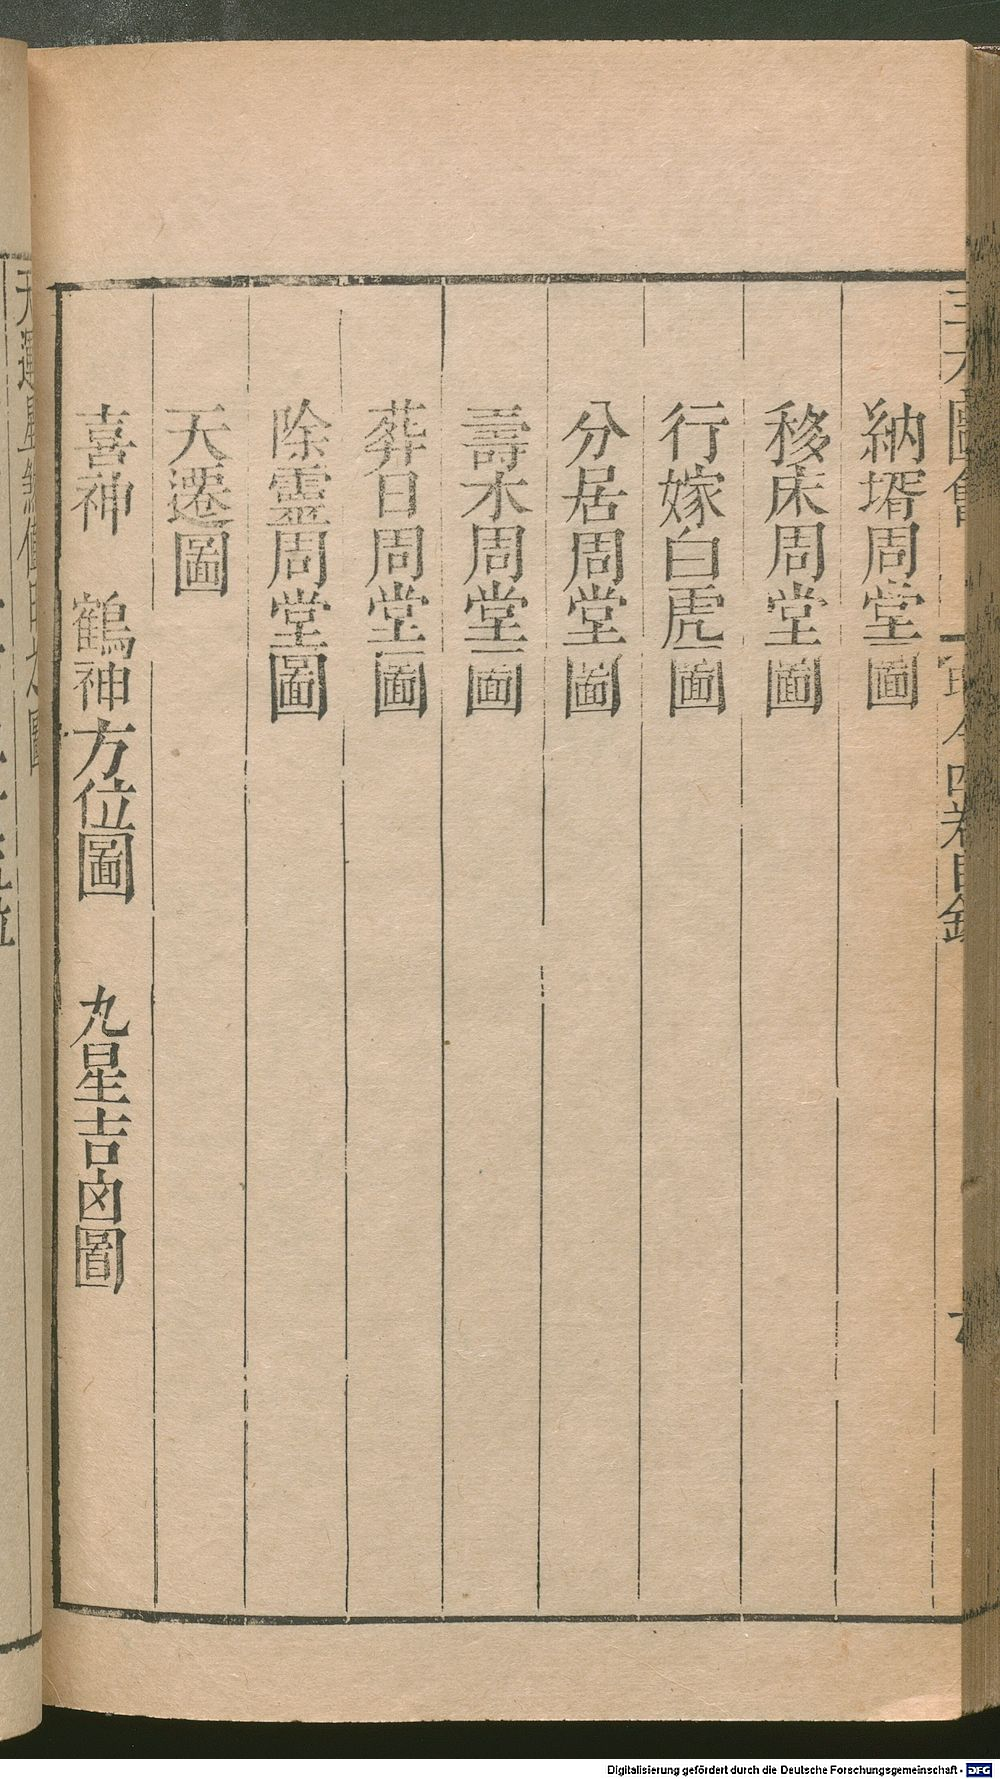 納壻周堂圖
移床周堂圖
行嫁白虎圖
分居周堂圖
壽木周堂圖
葬日周堂圖
除靈周堂圖
天遷圖
喜神 鶴神方位圖 九星吉凶圖
Digitalisierung gefördert durch die Deutsche Forschungsgemeinschaft - DFG